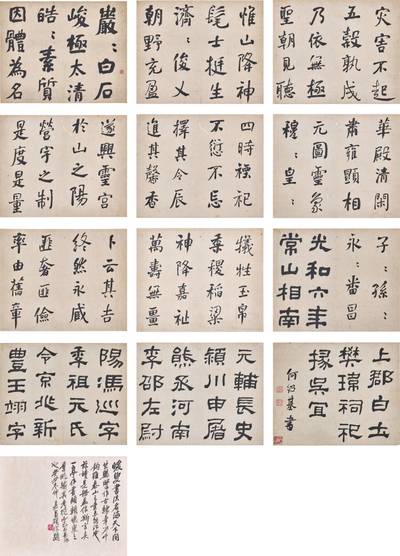 巖〻白石
峻極太清
皓〻素質
因體為名
惟山降神
髦士挺生
濟〻俊乂
朝野充盈
灾害不起
五穀孰成
乃依無極
聖朝見聽
遂興靈宮
於山之陽
營宇之制
是度是量
四時禋祀
不愆不忘
擇其令辰
進其馨香
華殿清閑
肅雍顯相
元圖靈象
穆〻皇〻
卜云其吉
終然永臧
匪奢匪儉
率由舊章
犧牲玉帛
黍稷稻粱
神降嘉祉
萬壽無疆
子〻孫〻
永〻番昌
光和六年
常山相南
陽馮巡字
季祖元氏
令京兆新
豐王翊字
元輔長史
潁川申屠
熊丞河南
李邵左尉
上郡白土
樊瑋祠祀
掾吳宜
何紹基書
蝯叟書法名滿天下